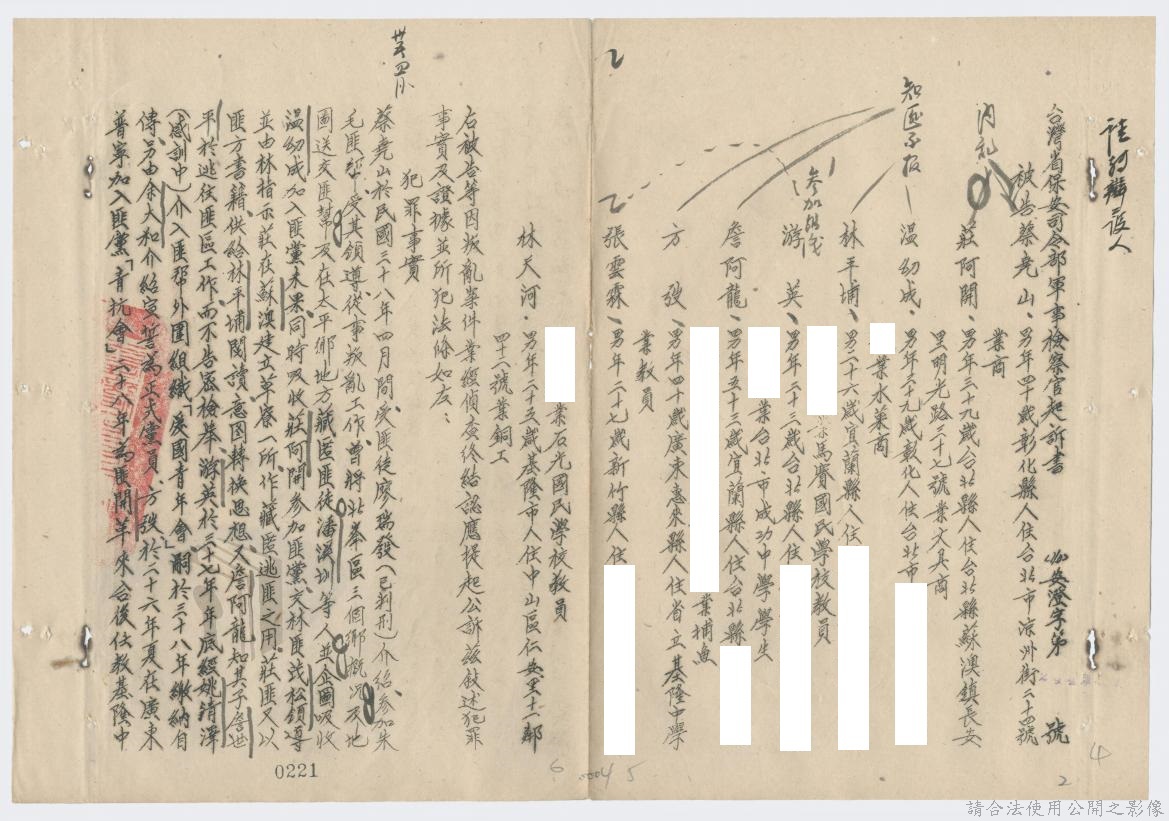 台灣省保安司令部軍事檢察官起訴書
安澄字第 號
被告蔡堯山、男年四十歲彰化縣人住台北市涼州街二十四號
業商
莊阿開、男年三十九歲台北縣人住台北縣蘇澳鎮長安
里明光路三十七號業文具商
温幼成、男年三九歲彰化人住台北市
業水菓商
林平埔、男二十六歲宜蘭縣人住
業馬賽國民學校教員
游英、男年二十三歲台北縣人住
業台北市成功中學學生
詹阿龍、男年五十三歲宜蘭縣人住台北縣
業捕魚
方弢、男年四十歲廣東惠來縣人住省立基隆中學
業教員
張雲霖、男年二十七歲新竹縣人住
業石光國民學校教員
林天河、男年二十五歲基隆市人住中山區仁安里十一鄰
四十二號業銅工
右被告等因叛亂案件業經偵查終結認應提起公訴茲敍述犯罪
事實及證據並所犯法條如左：
犯罪事實
蔡堯山於民國三十八年四月間受匪徒廖瑞發（已判刑）介紹參加朱
毛匪幫受其領導從事叛亂工作、曾將北峯區三個鄉概況及地
圖送交匪幫及在太平鄉地方藏匿匪徒潘溪圳等人並企圖吸收
温幼成加入匪黨未果同時吸收莊阿開參加匪黨交林匪茂松領導
並由林指示莊在蘇澳建立草寮一所、作藏匿逃匪之用莊匪又以
匪方書籍供給林平埔閱讀意圖轉換思想又詹阿龍知其子詹世
平於逃往匪區工作而不告密檢舉游英於三十七年年底經姚清澤
（感訓中）介入匪帮外圍組織「愛國青年會」嗣於三十八年繳納自
傳另由余大和介紹宣誓為正式黨員、方弢於二十六年夏在廣東
普寧加入匪黨「青抗會」二十八年為匪開革來台後任教基隆中
知匪不報
參加組織
0221
0004
5
6
2
4
請合法使用公開之影像